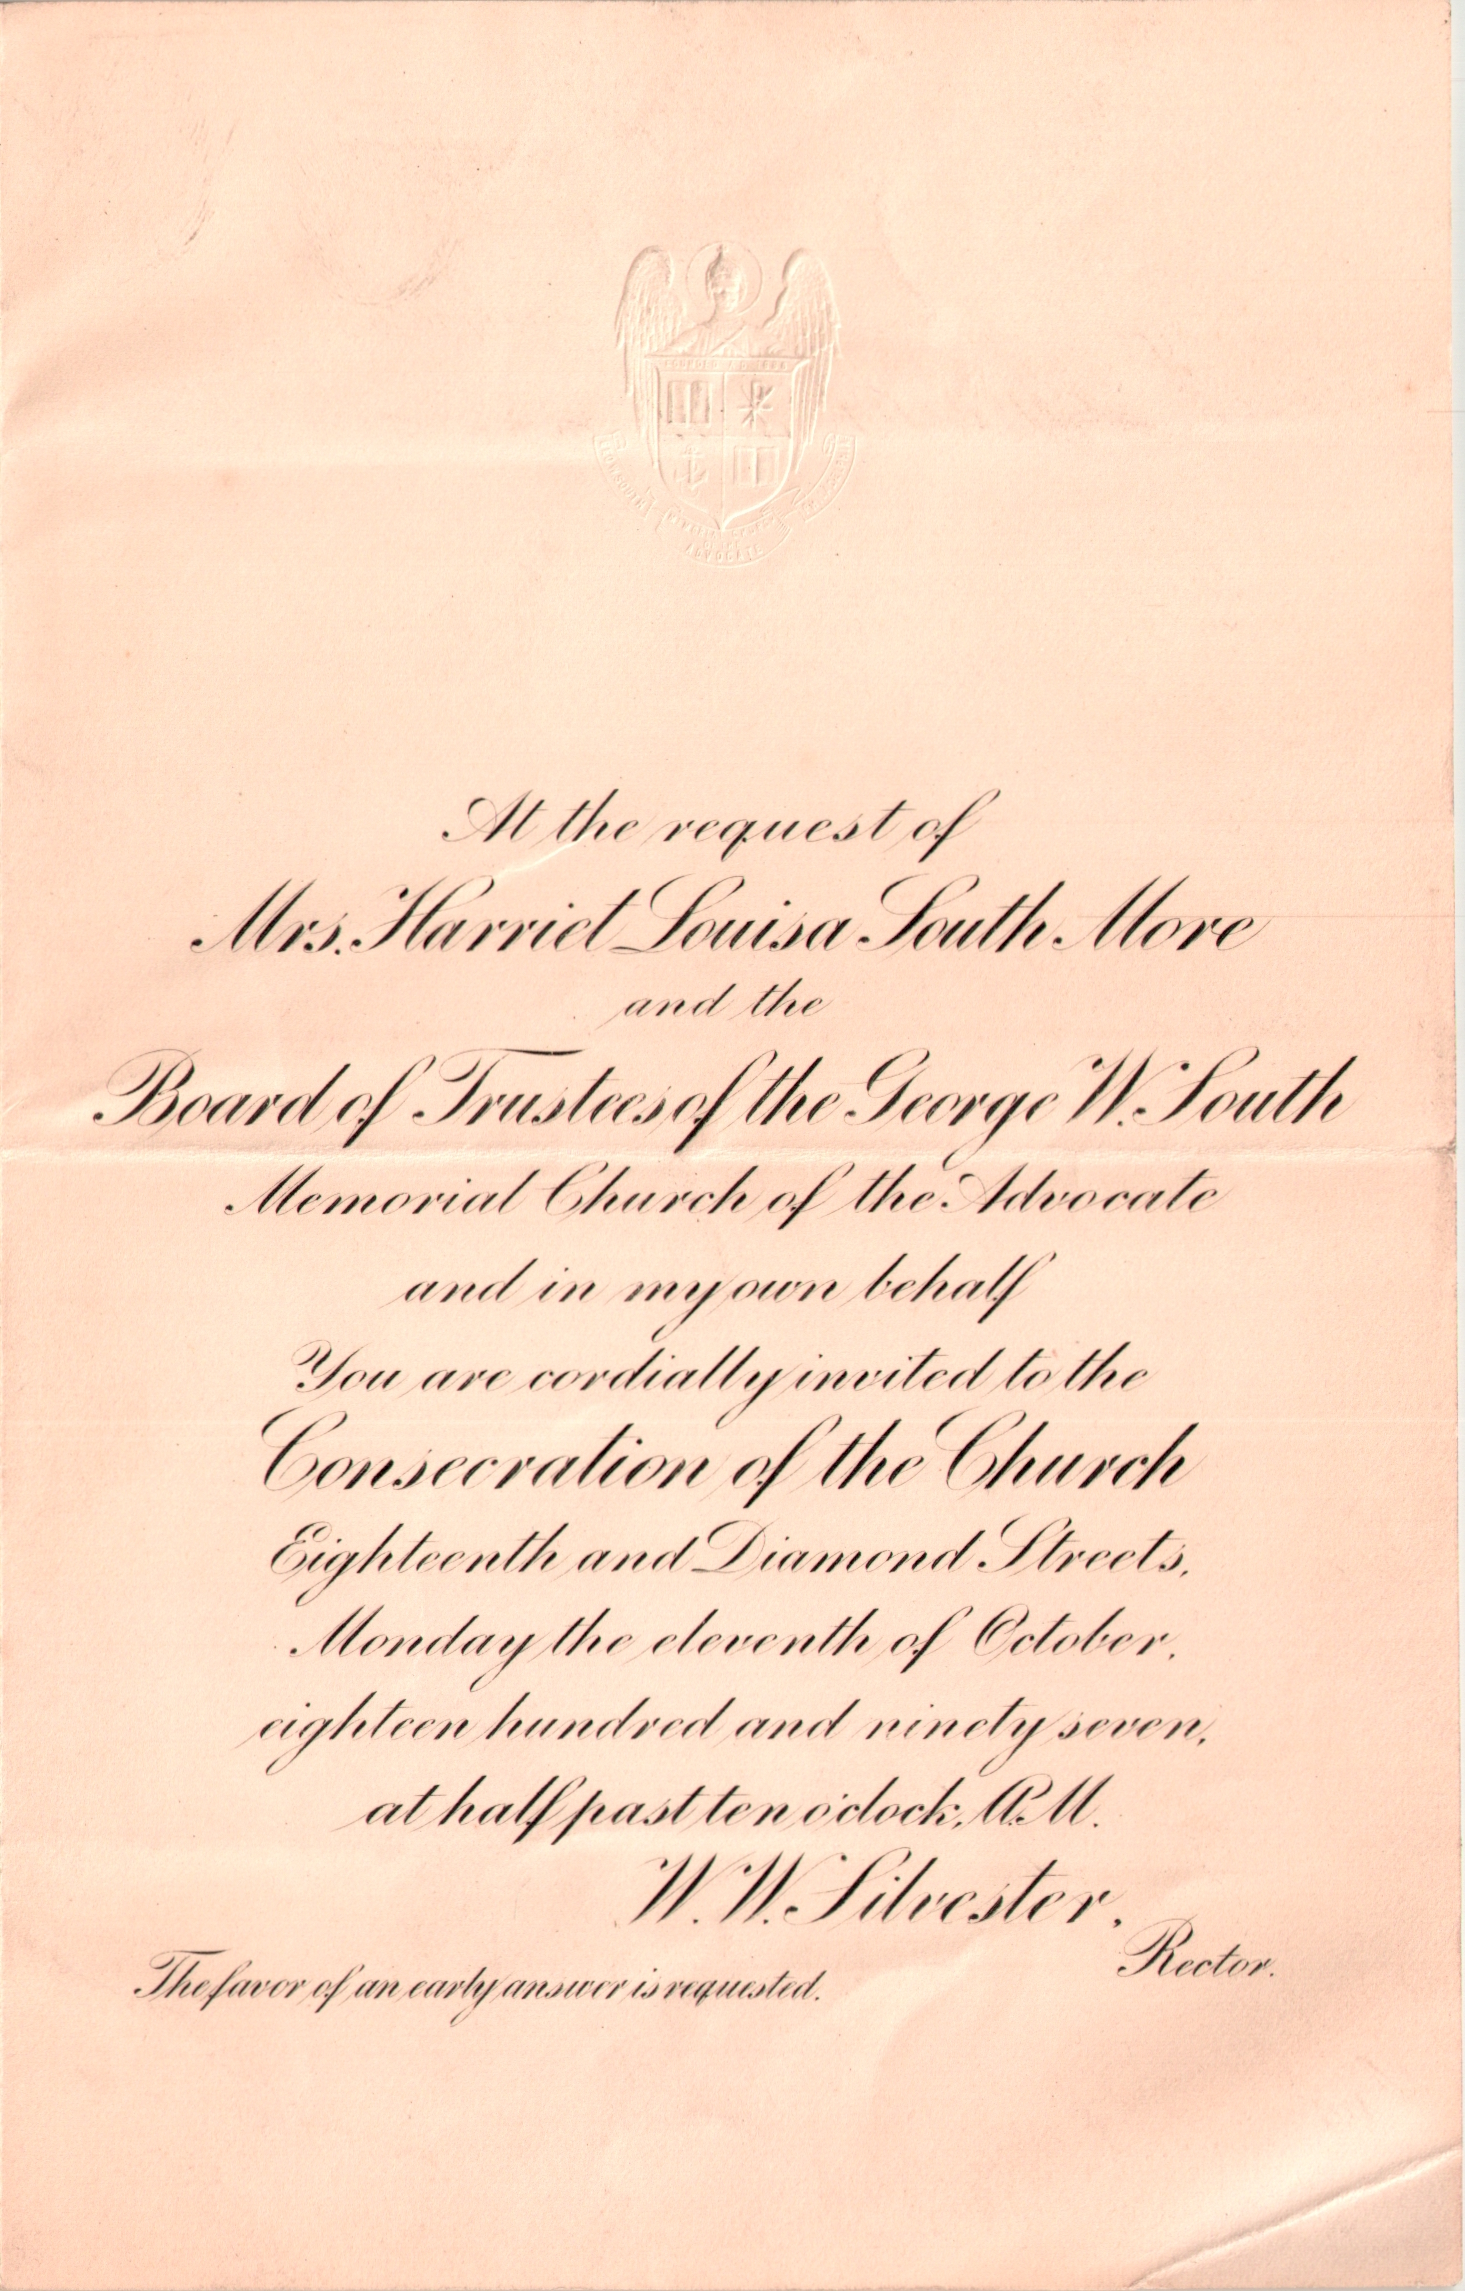 ADVOCATE
At the request of
Mrs. Harriet Louisa South More
and the
Board of Trustees of the George W. South
Memorial Church of the Advocate
and in my own behalf
You are cordially invited to the
Consecration of the Church
Eighteenth and Diamond Streets,
Monday the eleventh of October,
eighteen hundred and ninety seven,
at half past ten o'clock, A.M.
W. W. Silvester,
Rector.
The favor of an early answer is requested.